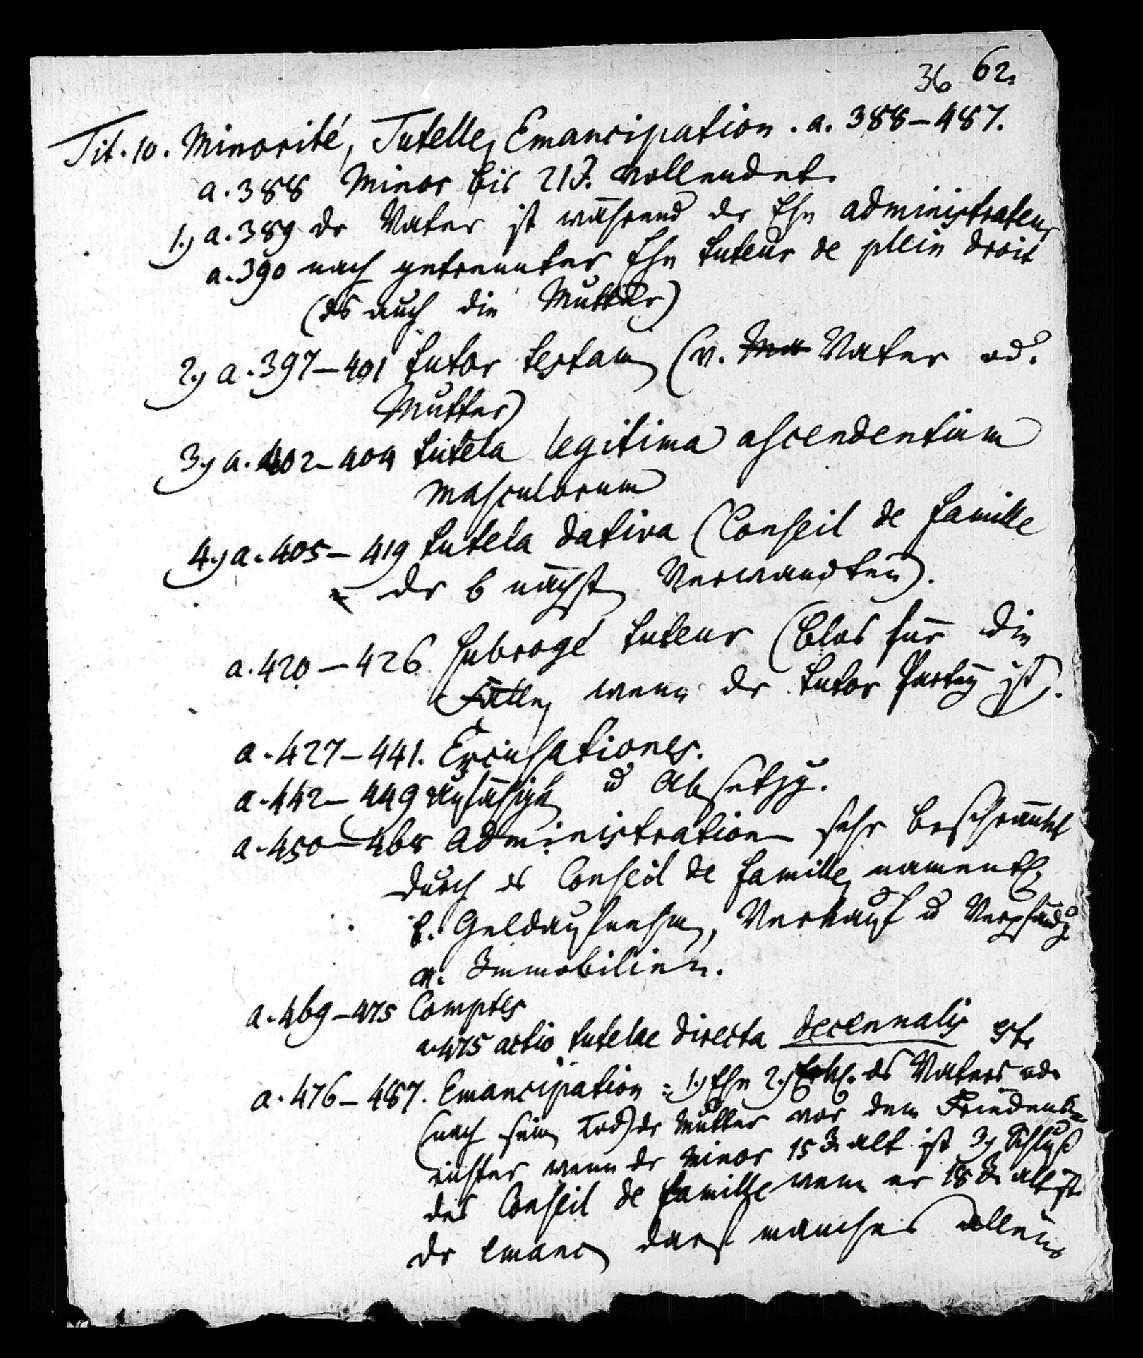 36 62.
Tit. 10. Minorité, Tutelle, Emancipation. a. 388–487.
a. 388 Minor bis 21 J. vollendet.
1.) a. 389 der Vater ist während der Ehe administrateur,
a. 390 nach getrennter Ehe tuteur de plein droit
(es auch die Mutter)
2.) a. 397–401 tutor testam (v. Vater od.
Mutter)
3.) a. 402–404 tutela legitima ascendentium
masculorum
4.) a. 405–419 tutela dativa (Conseil de famille
der 6 nächst Verwandten).
a. 420–426 subrogé tuteur (blos für die
Fälle, wenn der tutor Partey ist).
a. 427–441. Excusationes.
a. 442–449 u Absetzg.
a. 450–468 Administration sehr beschränkt
durch es Conseil de famille, namentl.
b. Geldaufnehm, Verkauf u Verpfändg
v. Immobilien.
a. 469–475 Comptes
a. 475 actio tutelae directa decennalis
a. 476–487. Emancipation: 1.) Ehe 2.) Erkl. des Vaters od.
(nach sein Tod) der Mutter vor dem Friedens-
richter wenn der minor 15 J. alt ist 3) Schluß
des Conseil de famille wenn er 18 J. alt ist
der emanc darf manches allein